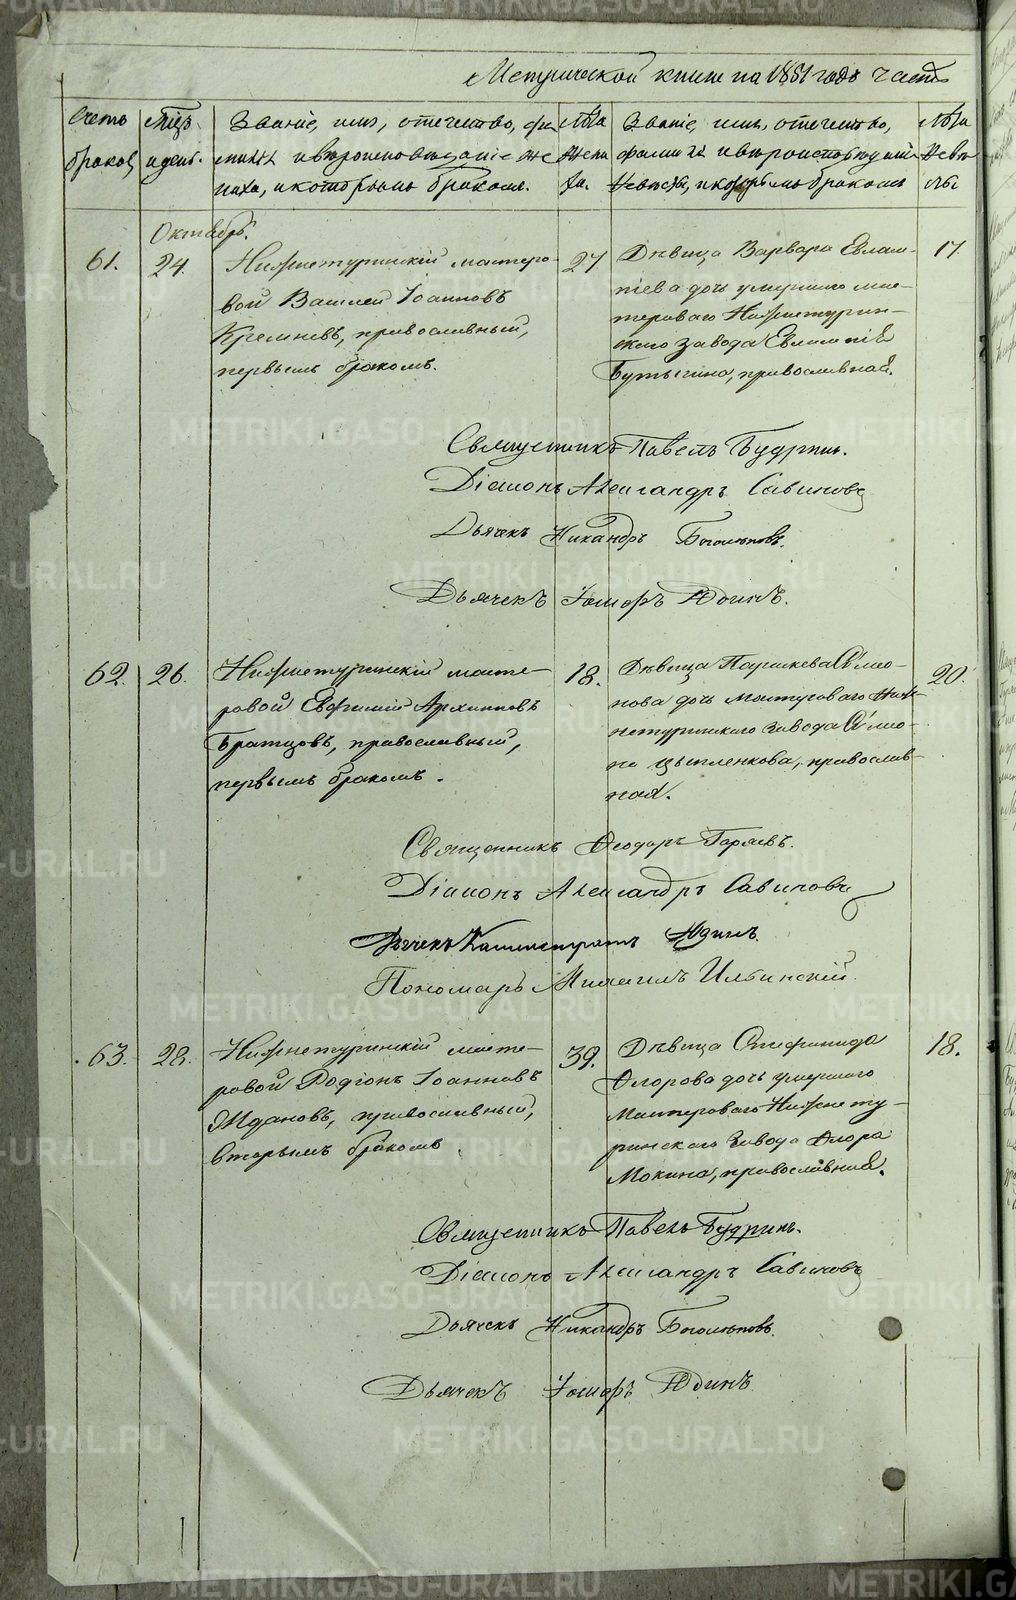 Метрической книги на 1851 годъ часть
Счетъ
браковъ
Мѣсяцъ
и день.
Званіе, имя, отчество, фа
милія и вѣроисповѣданіе же
ниха, и которымъ бракомъ.
Лѣта
жени
ха.
Званіе, имя, отчество,
фамилія и вѣроисповѣданіе
невѣсты, и которымъ бракомъ
Лѣта
невѣс
ты.
Октябрь.
61.
24.
Нижнетуринскій мастеро-
вой Василій Іоанновъ
Кремневъ, православный,
первымъ бракомъ.
27
Дѣвица Варвара Евлам-
піева дочь умершаго мас-
тероваго Нижнетурин-
скаго завода Евлампія
Бутыгина, православная.
17.
Священникъ Павелъ Будринъ.
Діаконъ Александръ Савиновъ
Дьячекъ Никандръ Боголѣповъ.
Дьячекъ Іосифъ Юдинъ.
62.
26.
Нижнетуринскій масте-
ровой Евфимій Архиповъ
Братцовъ, православный,
первымъ бракомъ.
18.
Дѣвица Параскева Симо-
нова дочь мастероваго Ниж-
нетуринскаго завода Симо-
на Цыпленкова, православ-
ная.
20.
Священникъ Ѳеодоръ Гаряевъ.
Діаконъ Александръ Савиновъ
Дьячекъ Каллистратъ Юдинъ.
Пономарь Михаилъ Ильинскій.
63.
28.
Нижнетуринскій масте-
ровой Родіонъ Іоанновъ
Ждановъ, православный,
вторымъ бракомъ.
39.
Дѣвица Стефанида
Флорова дочь умершаго
мастероваго Нижнету-
ринскаго завода Флора
Мокина, православная.
18.
Священникъ Павелъ Будринъ.
Діаконъ Александръ Савиновъ
Дьячекъ Никандръ Боголѣповъ.
Дьячекъ Іосифъ Юдинъ.
METRIKI.GASO-URAL.RU